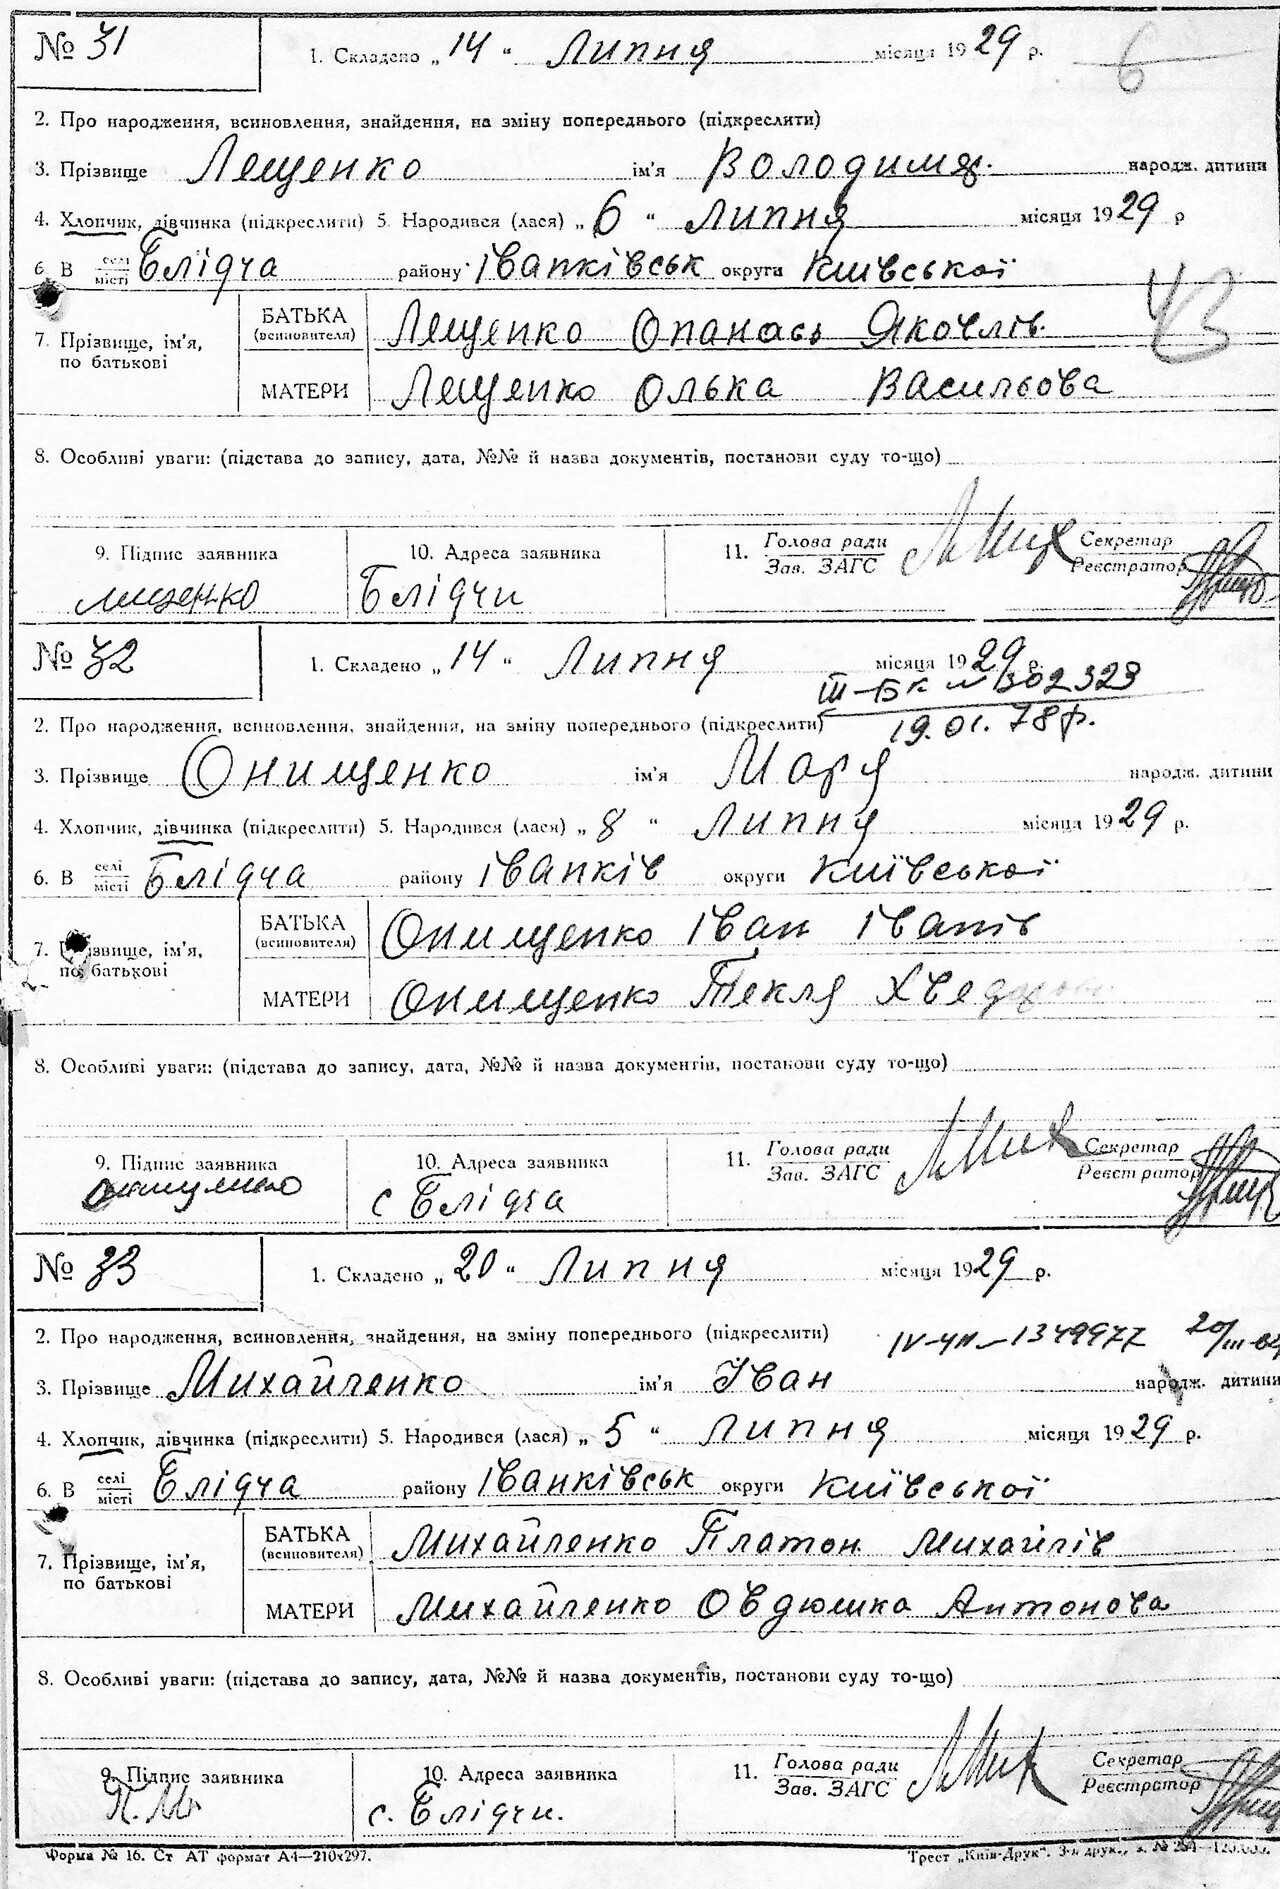 № 31 1. Складено „14“ Липня місяця 1929 р. 6
2. Про народження, всиновлення, знайдення, на зміну попереднього (підкреслити)
3. Прізвище Лещенко ім'я Володимир. народж. дитини
4. Хлопчик, дівчинка (підкреслити) 5. Народився (лася) „6“ Липня місяця 1929 р
6. В селі місті Блідча району Іванківськ округи Київської
43
7. Прізвище, ім'я, по батькові БАТЬКА (всиновителя) Лещенко Опанась Яковлів.
МАТЕРИ Лещенко Олька Васильова
8. Особливі уваги: (підстава до запису, дата, №№ й назва документів, постанови суду то-що)
9. Підпис заявника 10. Адреса заявника 11. Голова ради Зав. ЗАГС Секретар Реєстратор
лищенко Блідчи
№ 32 1. Складено „14“ Липня місяця 1929 р.
III-БК № 302323
2. Про народження, всиновлення, знайдення, на зміну попереднього (підкреслити) 19.01.78р.
3. Прізвище Онищенко ім'я Маря народж. дитини
4. Хлопчик, дівчинка (підкреслити) 5. Народився (лася) „8“ Липня місяця 1929 р.
6. В селі місті Блідча району Іванків округи Київської
7. Прізвище, ім'я, по батькові БАТЬКА (всиновителя) Онищенко Іван Іванів
МАТЕРИ Онищенко Текля Хведорова
8. Особливі уваги: (підстава до запису, дата, №№ й назва документів, постанови суду то-що)
9. Підпис заявника 10. Адреса заявника 11. Голова ради Зав. ЗАГС Секретар Реєстратор
с Блідча
№ 33 1. Складено „20“ Липня місяця 1929 р.
2. Про народження, всиновлення, знайдення, на зміну попереднього (підкреслити) 1349977
3. Прізвище Михайленко ім'я Іван народж. дитини
4. Хлопчик, дівчинка (підкреслити) 5. Народився (лася) „5“ Липня місяця 1929 р.
6. В селі місті Блідча району Іванківськ округи Київської
7. Прізвище, ім'я, по батькові БАТЬКА (всиновителя) Михайленко Платон Михайлів
МАТЕРИ Михайленко Овдюшка Антонова
8. Особливі уваги: (підстава до запису, дата, №№ й назва документів, постанови суду то-що)
9. Підпис заявника 10. Адреса заявника 11. Голова ради Зав. ЗАГС Секретар Реєстратор
с. Блідчи.
Форма № 16. Ст АТ формат А4—210х297. Трест „Київ-Друк“.